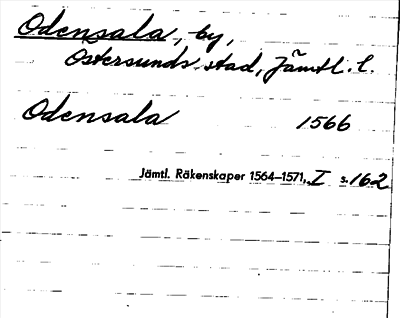 Odensala, by,
Östersunds stad, Jämtl. l.
Odensala 1566
Jämtl. Räkenskaper 1564–1571, I s. 162